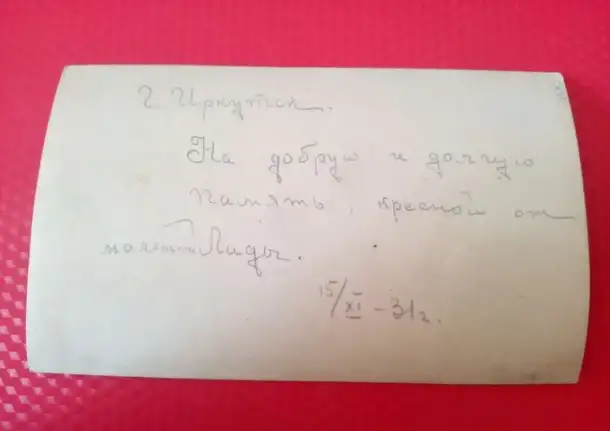 г. Иркутск.
На добрую и долгую
память, кресной от
Лиды.
15/XI - 31 г.